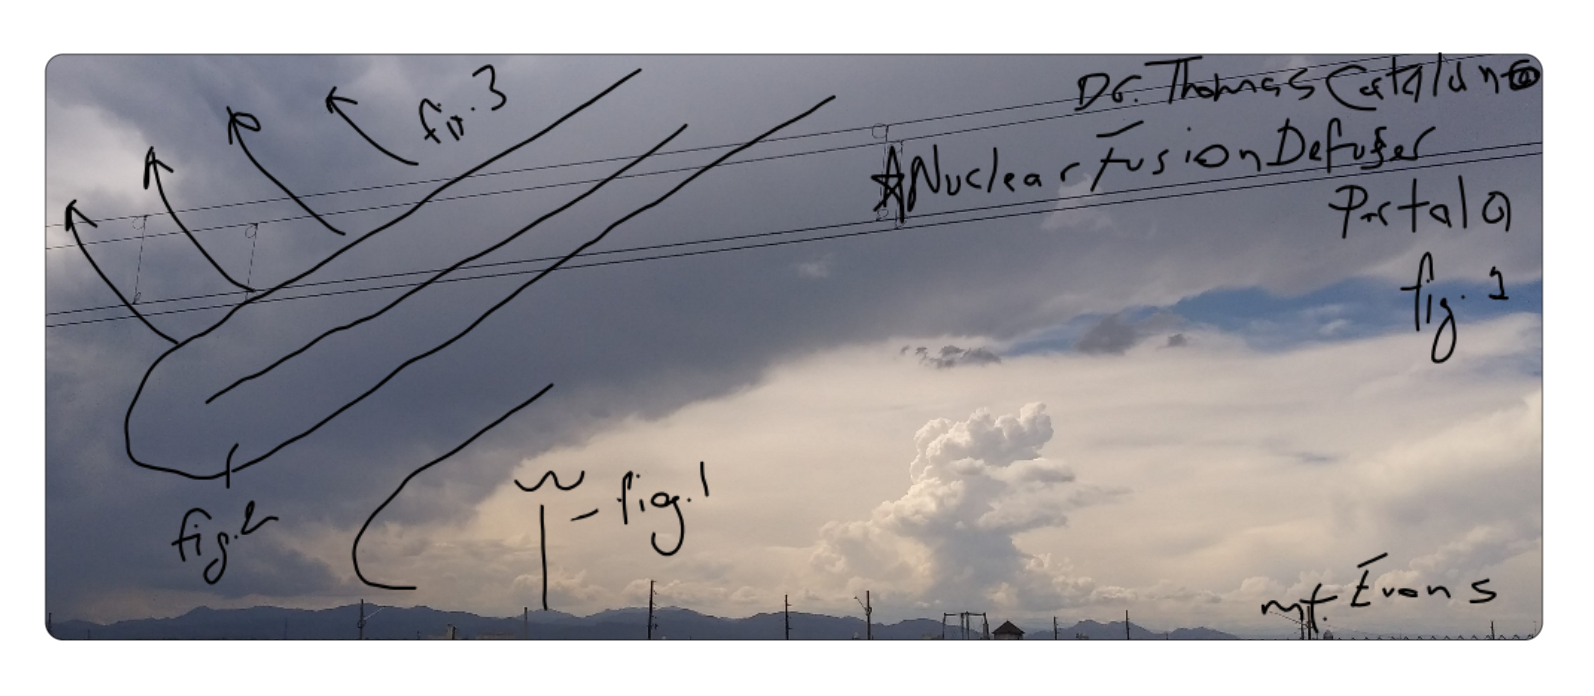 Dr. Thomas Cataldino
Nuclear Fusion Defuser
Portal a
fig. 3
fig. 1
fig. 2
mt. Evans